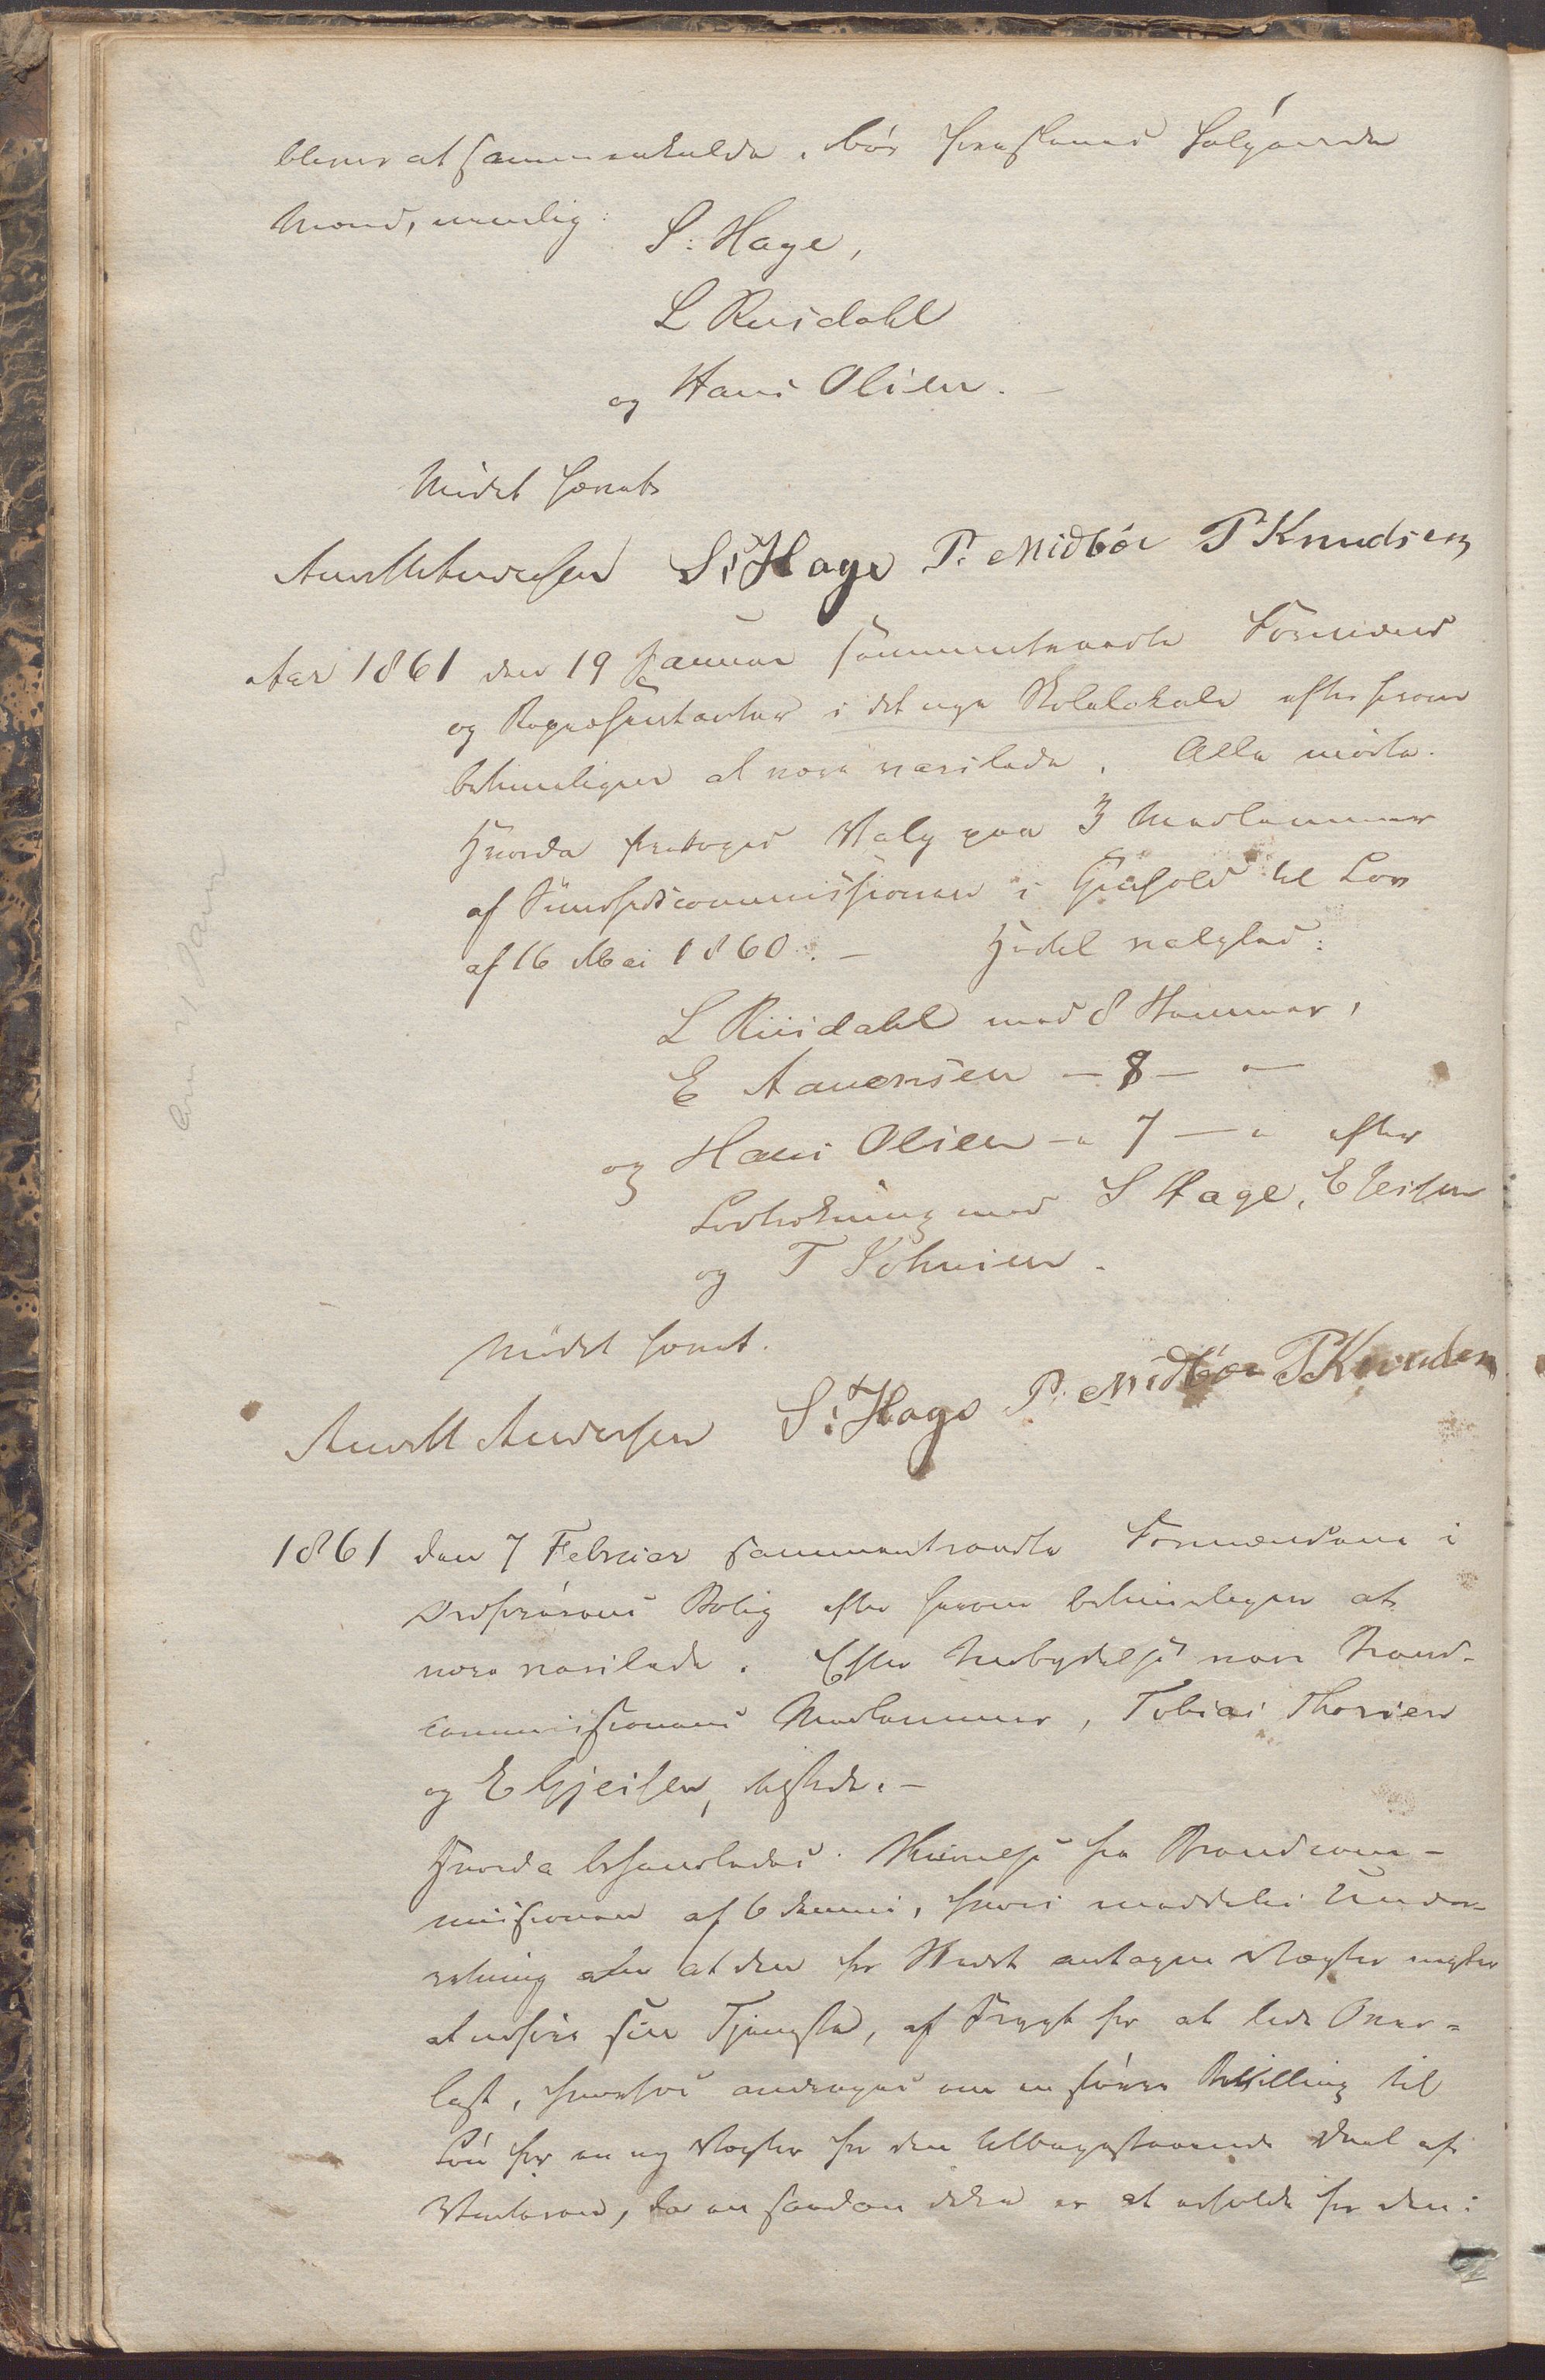 bliver at sammenkalde, bör fremstaaes følgende
Mænd, nemlig: S: Hage,
L Ruisdahl
og Hans Olsen.
Mödet hævet
Amsll Andersen S: Hage P. Midbör P Knudsen
Aar 1861 den 19 Januar sammentraadte Formænd
og Repræsentanter i det nye Skolelokale efter forom
betimeligen at være varslede. Alle mödte.
Hvorda foretoges Valg paa 3 Medlemmer
af Sundhedscommissionen i Henhold til Lov
af 16 Mai 1860. - Hertil valgtes:
L Ruisdahl med 8 Stemmer,
E Aanensen - 8 - -
og Hans Olsen - 7 - efter
Lodtrækning med S Hage, E Jeisen
og T Johnsen.
Mödet hævet.
Amsll Andersen S: Hage P. Midbör P Knudsen
1861 den 7 Februar sammentraadte Formændene i
Ordförerens Bolig efter forom betimeligen at
være varslede. Efter Indbydelse vare Brand-
commissionens Medlemmer, Tobias Thorsen
og E Gjeisen, tilstede. -
Hvorda behandledes Skrivelse fra Brandcom-
missionen af 6 dennes, hvori meddeles Under-
retning om at den for Stedet antagne Vægter negter
at udföre sin Tjeneste, af Frygt for at lide Over-
last, hvorfor andrages om en större Bevilling til
Lön for en ny Vægter for den tilbagestaaende Deel af
Vinteren, da en saadan ikke er at erholde for den i